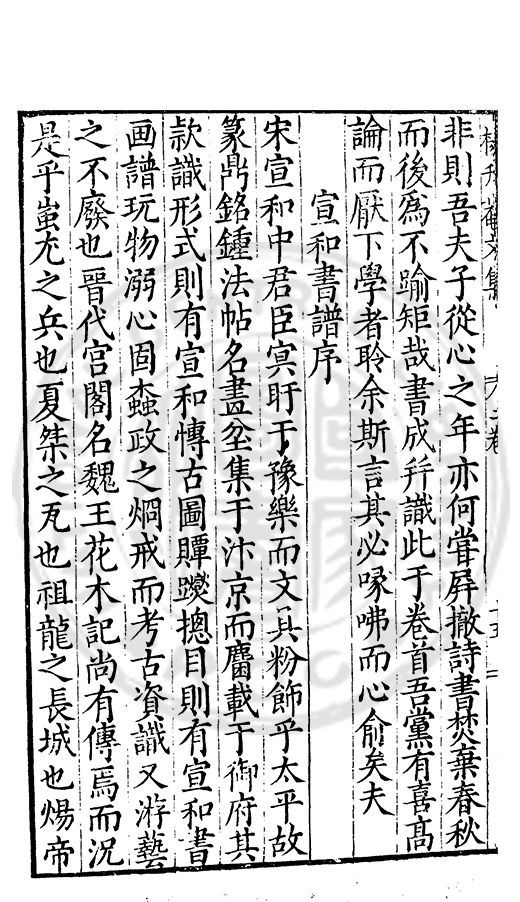 非則吾夫子從心之年亦何嘗屏撤詩書焚棄春秋
而後爲不踰矩哉書成幷識此于卷首吾黨有喜髙
論而厭下學者聆余斯言其必喙咈而心俞矣夫
宣和書譜序
宋宣和中君臣㝠盱于豫樂而文具粉飾乎太平故
篆鼎銘鍾法帖名畫坌集于汴京而麕載于御府其
款識形式則有宣和愽古圖賱躞揔目則有宣和書
画譜玩物溺心固蠧政之烱戒而考古資識又游藝
之不廢也晋代宫閣名魏王花木記尚有傳焉而況
是乎蚩尤之兵也夏桀之瓦也祖龍之長城也煬帝